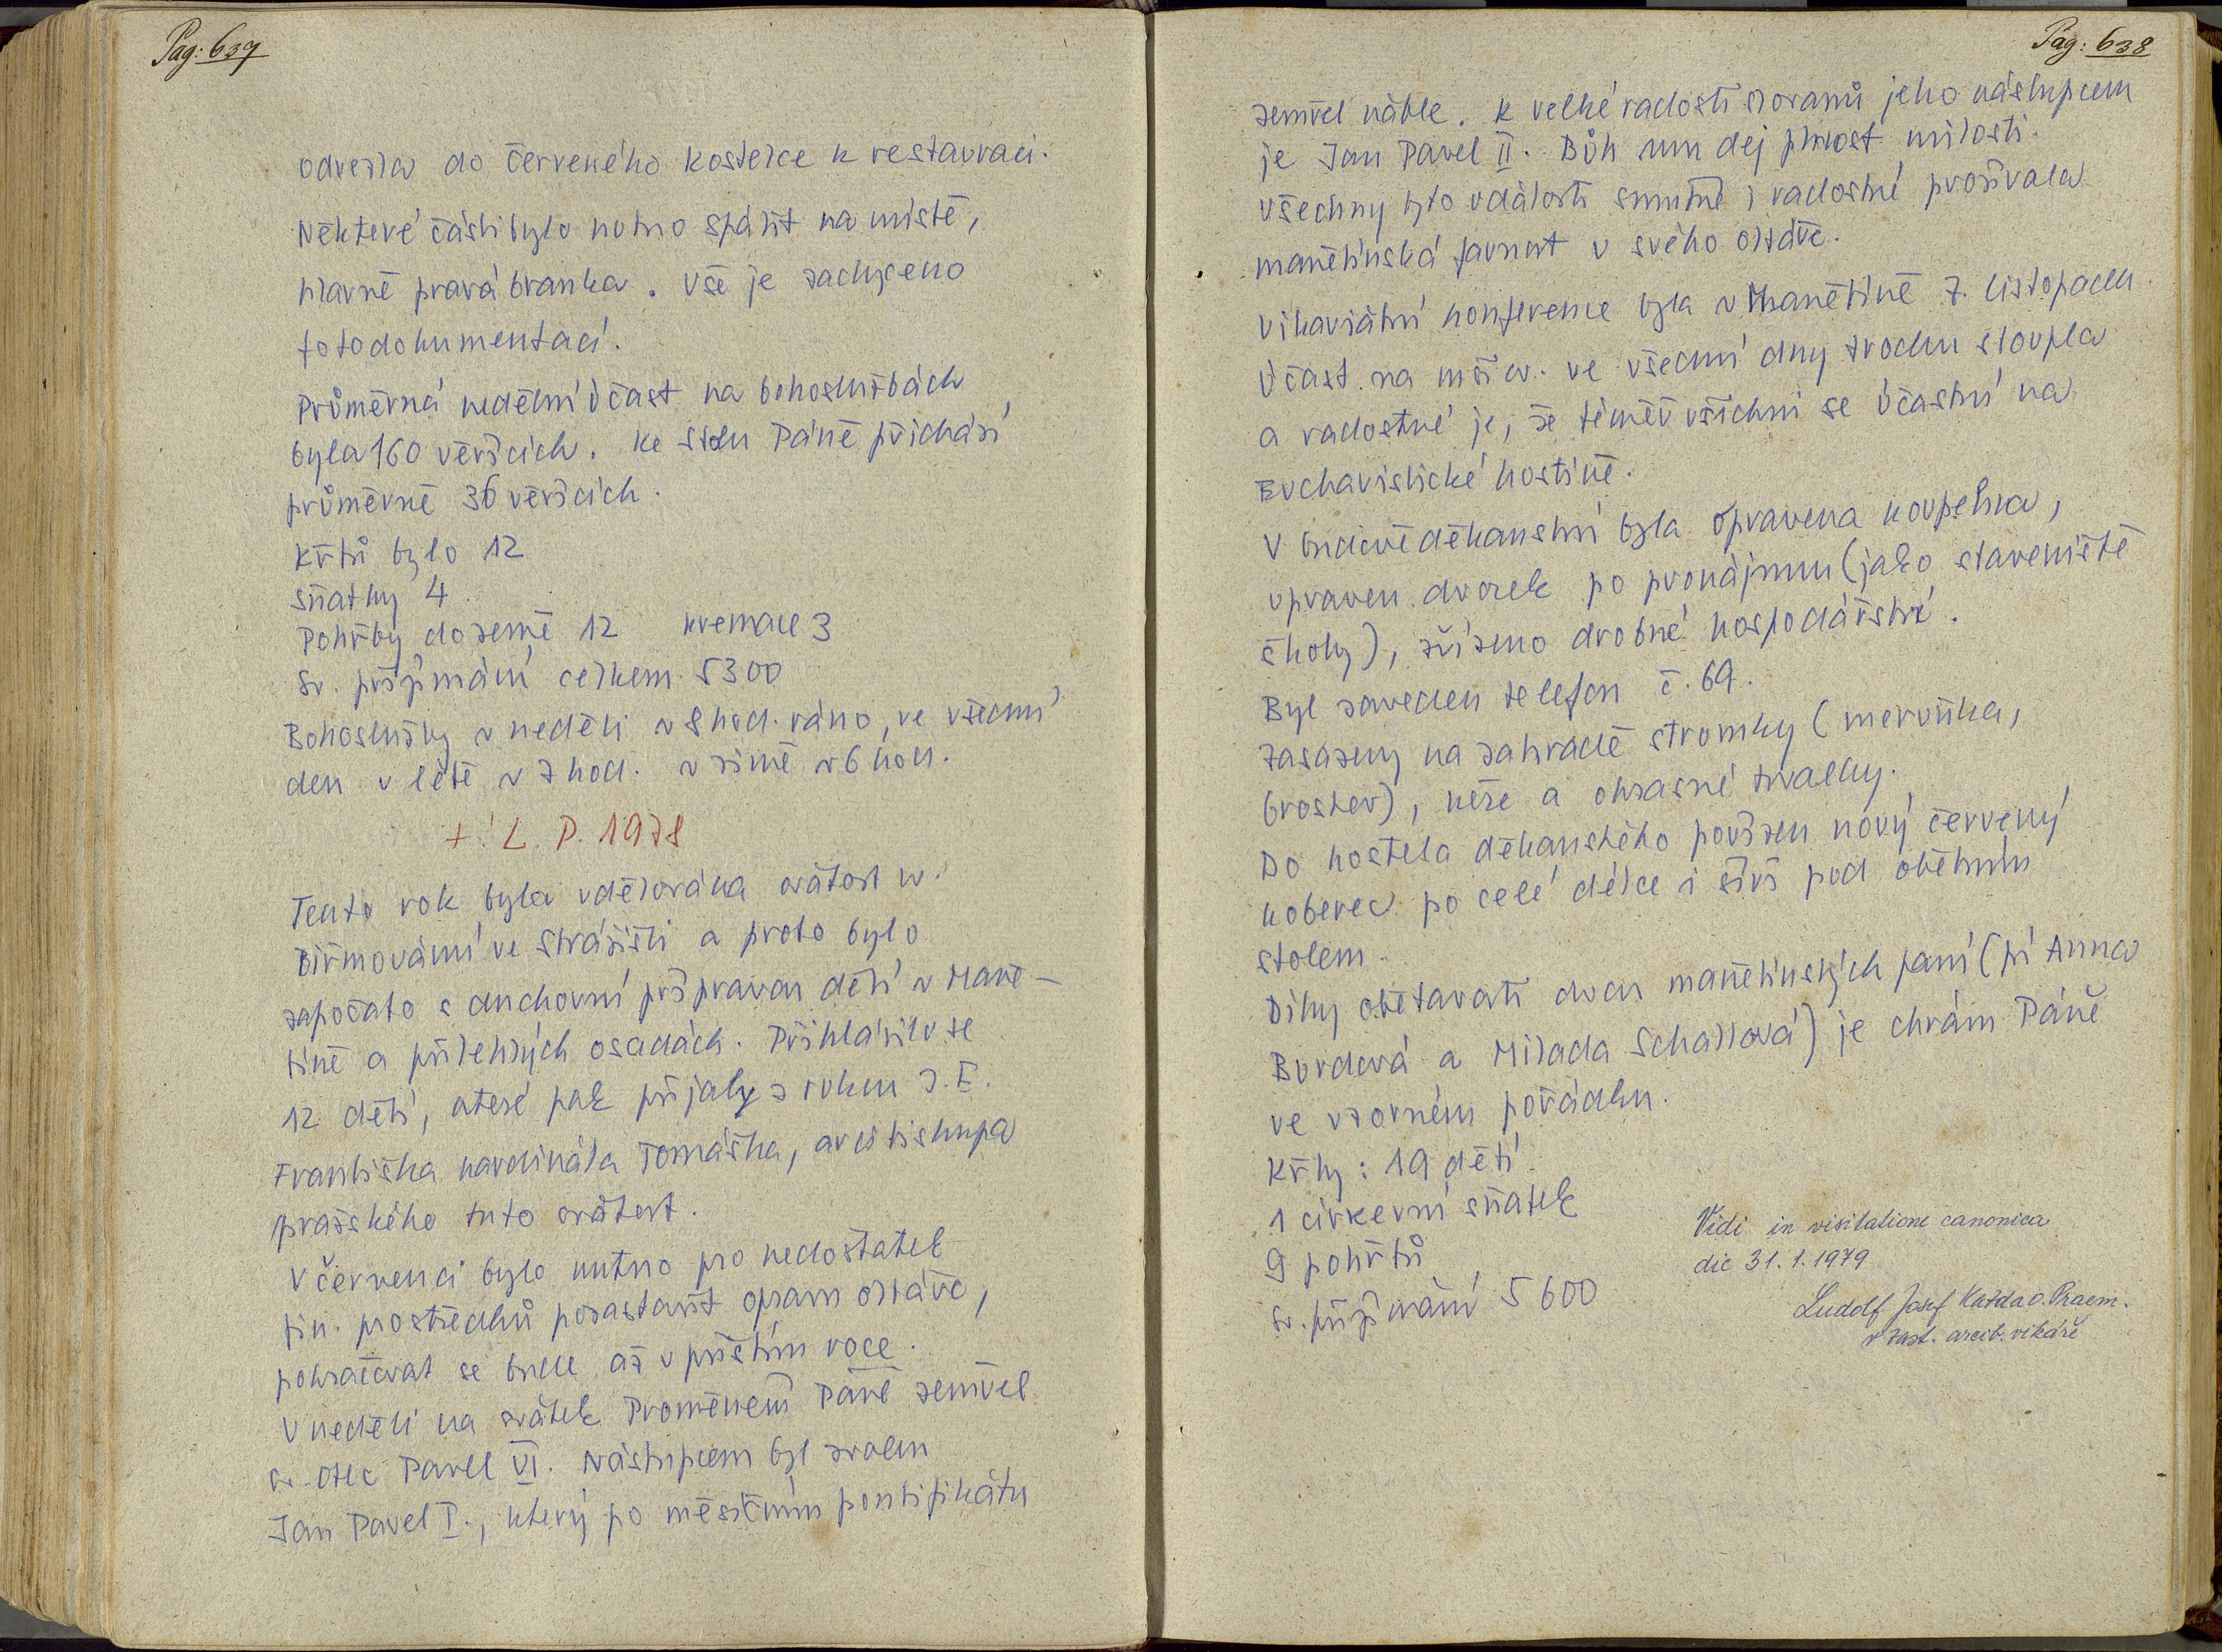 Pag: 637
odvezla do Červeného Kostelce k restauraci.
Některé části bylo nutno spálit na místě,
hlavně pravá branka. Vše je zachyceno
fotodokumentací.
Průměrná nedělní účast na bohoslužbách
byla 160 věřících. Ke stolu Páně přichází
průměrně 36 věřících.
Křtů bylo 12
Sňatky 4.
Pohřby do země 12 kremace 3
Sv. přijímání celkem 5300
Bohoslužby v neděli v 8 hod. ráno, ve všední
den v létě v 7 hod. v zimě v 6 hod.
+! L. P. 1978
Tento rok byla udělována svátost sv.
Biřmování ve Strážišti a proto bylo
započato s duchovní přípravou dětí v Maně-
tíně a přilehlých osadách. Přihlásilo se
12 dětí, které pak přijaly z rukou J. E.
Františka kardinála Tomáška, arcibiskupa
pražského tuto svátost.
V červenci bylo nutno pro nedostatek
fin. prostředků pozastavit opravu oltáře,
pokračovat se bude až v příštím roce.
V neděli na svátek Proměnění Páně zemřel
sv. Otec Pavel VI. Nástupcem byl zvolen
Jan Pavel I., který po měsíčním pontifikátu
Pag: 638
zemřel náhle. K velké radosti Slovanů jeho nástupcem
je Jan Pavel II. Bůh mu dej plnost milosti.
Všechny tyto události smutné i radostné prožívala
manětínská farnost u svého oltáře.
Vikariátní konference byla v Manětíně 7. listopadu.
Účast na mši sv. ve všední dny trochu stoupla
a radostné je, že téměř všichni se účastní na
Eucharistické hostině.
V budově děkanství byla opravena koupelna,
upraven dvorek po pronájmu (jako staveniště
školy), zřízeno drobné hospodářství.
Byl zaveden telefon č. 69.
Zasazeny na zahradě stromky (meruňka,
broskev), růže a okrasné trvalky.
Do kostela děkanského pořízen nový červený
koberec po celé délce i šíři pod obětním
stolem.
Díky obětavosti dvou manětínských paní (pí Anna
Burdová a Milada Schallová) je chrám Páně
ve vzorném pořádku.
Křty: 19 dětí
1 církevní sňatek
9 pohřbů
sv. přijímání 5600
Vidi in visitatione canonica
die 31. 1. 1979
Ludolf Josef Kazda O. Praem.
v zast. arcib. vikáře